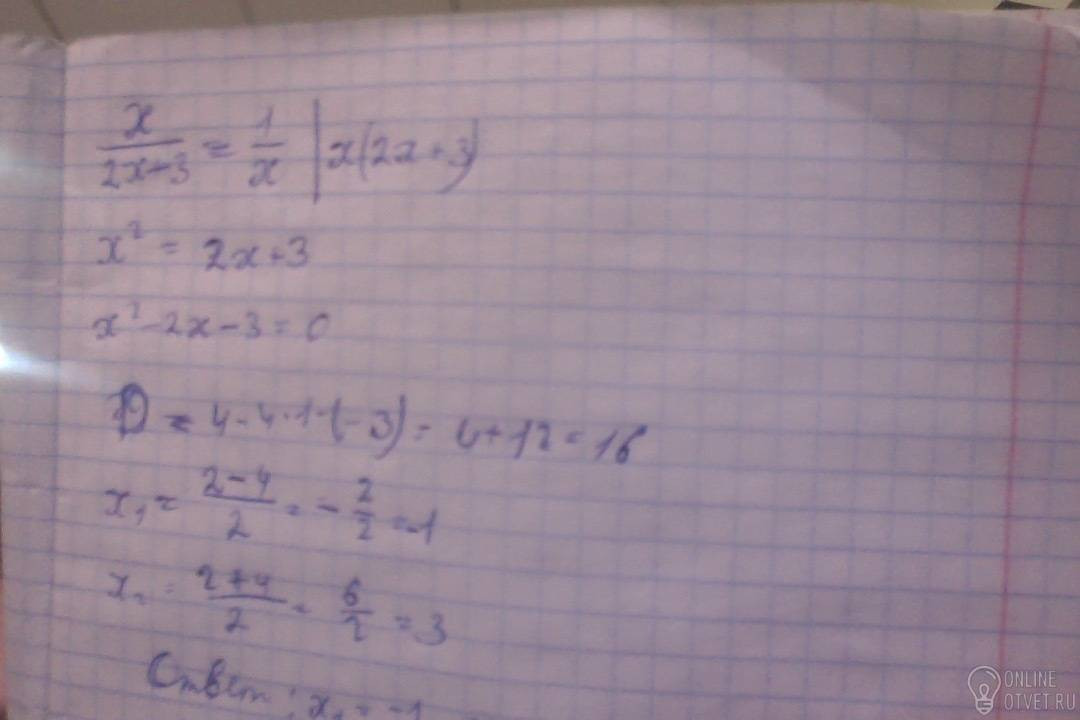 x/(2x+3) = 1/x | x(2x+3)
x² = 2x+3
x²-2x-3=0
D = 4-4·1·(-3) = 4+12=16
x₁ = (2-4)/2 = -2/2 = -1
x₂ = (2+4)/2 = 6/2 = 3
Ответ: x₁ = -1
ONLINE
OTVET.RU